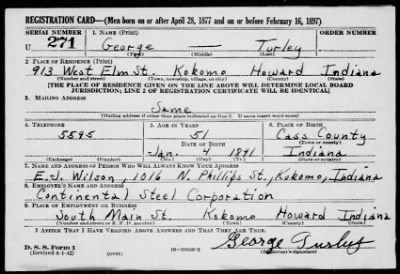 REGISTRATION CARD—(Men born on or after April 28, 1877 and on or before February 16, 1897)
SERIAL NUMBER 1. NAME (Print) ORDER NUMBER
U 271 George — Turley
(First) (Middle) (Last)
2. PLACE OF RESIDENCE (Print)
913 West Elm St. Kokomo Howard Indiana
(Number and street) (Town, township, village, or city) (County) (State)
[THE PLACE OF RESIDENCE GIVEN ON THE LINE ABOVE WILL DETERMINE LOCAL BOARD
JURISDICTION; LINE 2 OF REGISTRATION CERTIFICATE WILL BE IDENTICAL]
3. MAILING ADDRESS
Same
[Mailing address if other than place indicated on line 2. If same insert word same]
4. TELEPHONE 5. AGE IN YEARS 6. PLACE OF BIRTH
5595 51 Cass County
DATE OF BIRTH (Town or county)
Jan. 4 1891 Indiana
(Exchange) (Number) (Mo.) (Day) (Yr.) (State or country)
7. NAME AND ADDRESS OF PERSON WHO WILL ALWAYS KNOW YOUR ADDRESS
E.J. Wilson, 1016 N. Phillips St., Kokomo, Indiana
8. EMPLOYER'S NAME AND ADDRESS
Continental Steel Corporation
9. PLACE OF EMPLOYMENT OR BUSINESS
South Main St. Kokomo Howard Indiana
(Number and street or R. F. D. number) (Town) (County) (State)
I AFFIRM THAT I HAVE VERIFIED ABOVE ANSWERS AND THAT THEY ARE TRUE.
George Turley
D. S. S. Form 1
(Revised 4-1-42) (over) (Registrant's signature)